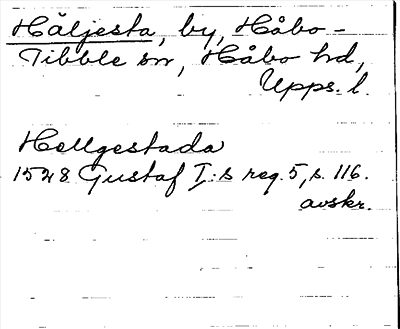 Håljesta, by, Håbo-
Tibble sn, Håbo hd,
Upps. l.
Hellgestada
1528 Gustaf I:s reg. 5, s. 116.
avskr.